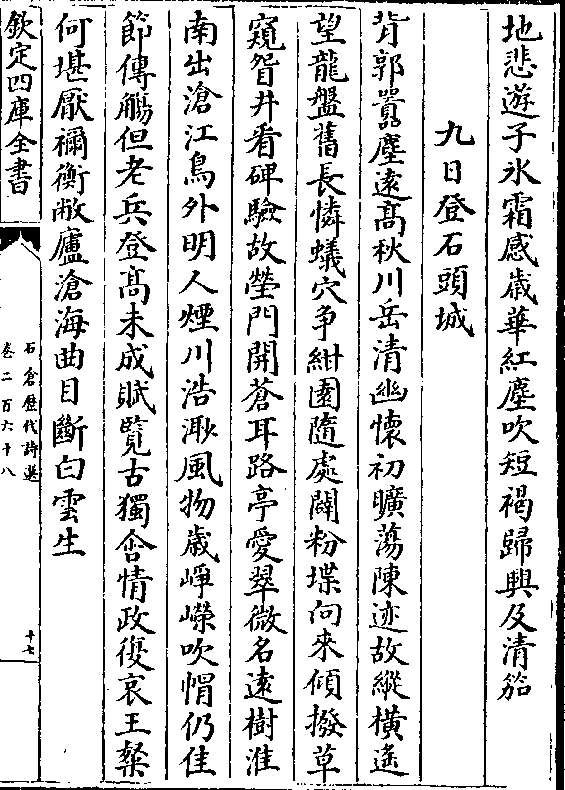 地悲遊子氷霜感歳華紅塵吹短褐歸興及清笳
九日登石頭城
背郭囂塵遠髙秋川岳清幽懷初曠蕩陳迹故縱橫遙
望龍盤舊長憐蟻穴爭紺園隨處闢粉堞向來傾撥草
窺眢井看碑驗故塋門開蒼耳路亭愛翠微名遠樹淮
南出滄江鳥外明人煙川浩渺風物歳崢嶸吹㡌仍佳
節傳觴但老兵登髙未成賦覽古獨含情政復哀王粲
何堪厭禰衡敝廬滄海曲目斷白雲生
欽定四庫全書
石倉歴代詩選
卷二百六十八
十七